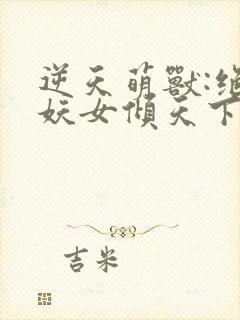 逆天萌獸:絕
妖女傾天下
吉米